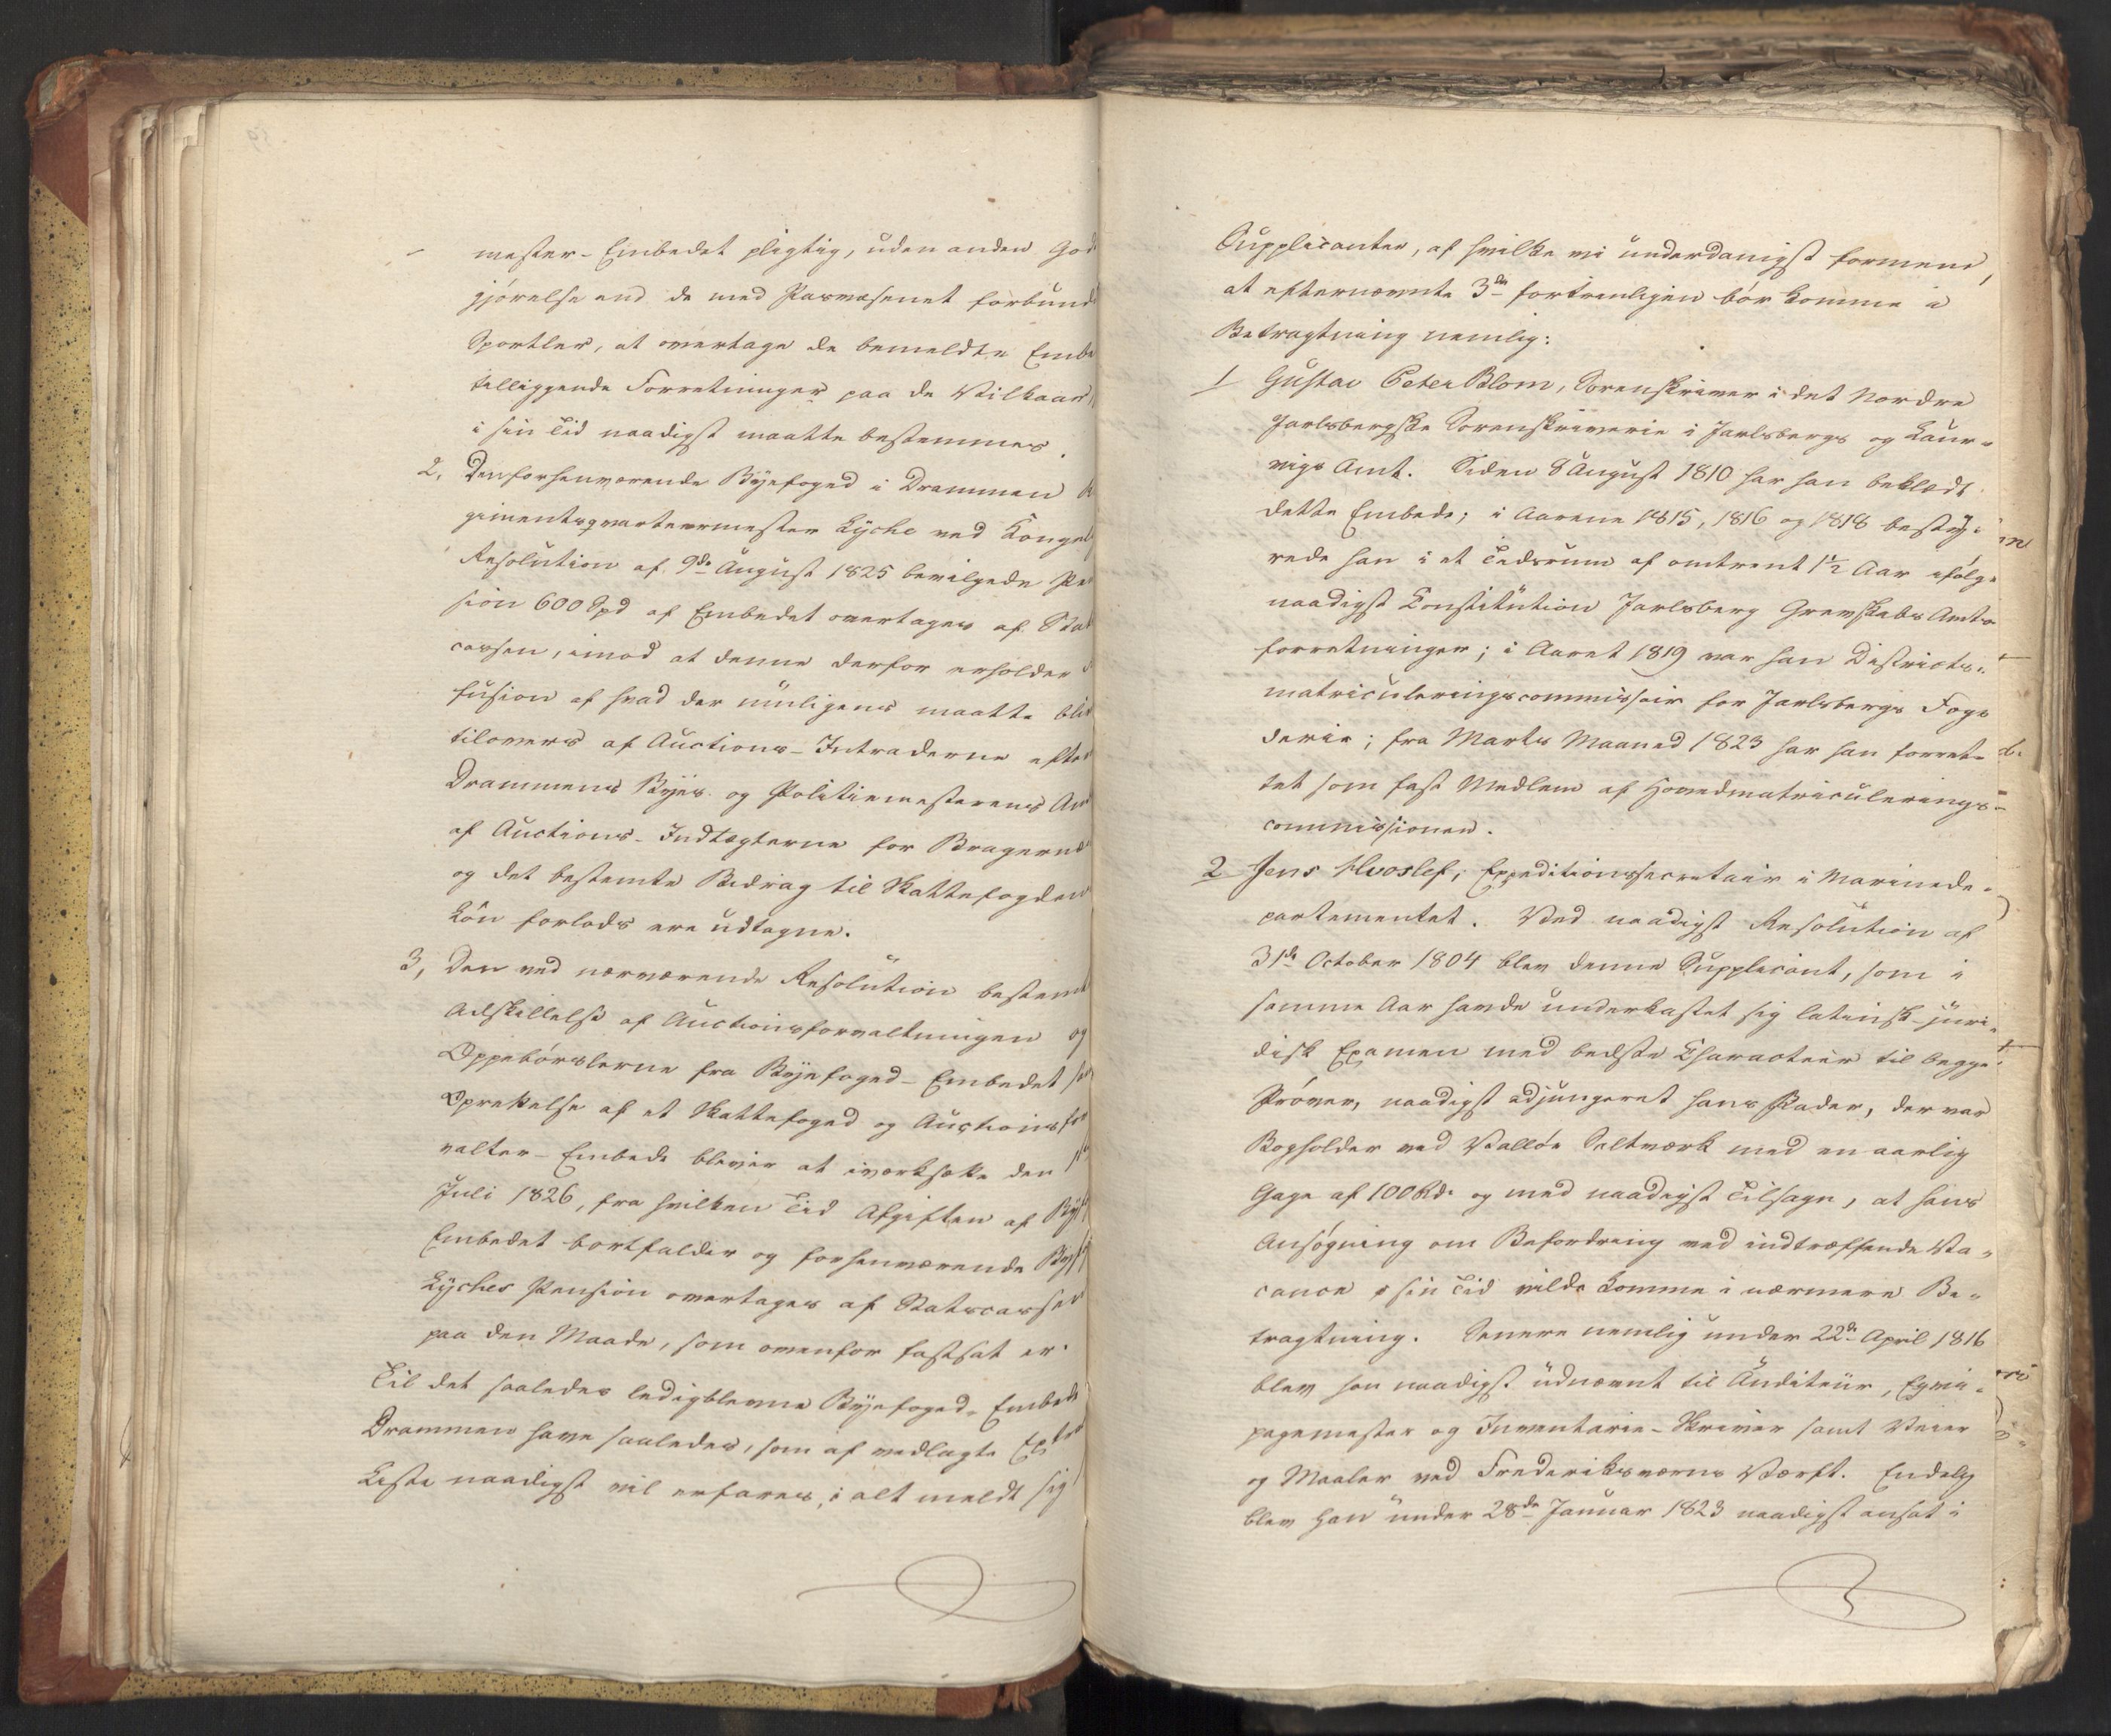 mester-Embedet pligtig, uden anden God
gjørelse end de med Pasvæsenet forbund
Sportler, at overtage de bemeldte Embe
tilliggende Forretninger paa de Vilkaar
i sin Tid naadigst maatte bestemmes.
2, Den forhenværende Byefoged i Drammen R
gimentsqvarteermester Lyche ved Kongel
Resolution af 9de August 1825 bevilgede Pen
sion 600 Spd af Embedet overtages af Stat
cassen, imod at denne derfor erholder
fusion af hvad der muligens maatte bliv
tilovers af Auctions-Intraderne efter
Drammens Byes og Politiemesterens An
af Auctions-Indtægterne for Bragernæ
og det bestemte Bidrag til Skattefogden
Løn forlods ere udtagne.
3, Den ved nærværende Resolution bestemt
Adskillelse af Auctionsforvaltningen og
Oppebørslerne fra Byefoged-Embedet sam
Oprettelse af et Skattefoged og Auctionsfor
valter-Embede bliver at iværksætte den 1ste
Juli 1826, fra hvilken Tid Afgiften af Byf
Embedet bortfalder og forhenværende Byf
Lyches Pension overtages af Statscassen
paa den Maade, som ovenfor fastsat er.
Til det saaledes ledigblevne Byefoged-Embede
Drammen have saaledes, som af vedlagte Extra
Liste naadigst vil erfares, i alt meldt sig
Supplicanter, af hvilke vi underdanigst formene,
at efternævnte 3de fortrinligen bør komme i
Betragtning nemlig:
1 Gustav Peter Blom, Sorenskriver i det Nordre
Jarlsbergske Sorenskriverie i Jarlsbergs og Laur-
vigs Amt. Siden 8 August 1810 har han beklædt
dette Embede; i Aarene 1815, 1816 og 1818 besty-
rede han i et Tidsrum af omtrent 1½ Aar ifølge
naadigst Constitution Jarlsberg Grevskabs Amts-
forretninger; i Aaret 1819 var han Districts-
matriculeringscommissair for Jarlsbergs Fog-
derie; fra Marts Maaned 1823 har han forret-
tet som fast Medlem af Hovedmatriculerings-
commissionen.
2 Jens Hvoslef, Expeditionssecretair i Marinede-
partementet. Ved naadigst Resolution af
31de October 1804 blev denne Supplicant, som i
samme Aar havde underkastet sig latinsk-juri-
disk Examen med bedste Characteer til begge
Prøver, naadigst adjungeret hans Fader, der var
Bogholder ved Valløe Saltværk med en aarlig
Gage af 100 Rd. og med naadigst Tilsagn, at hans
Ansøgning om Befordring ved indtræffende Va-
cance i sin Tid vilde komme i nærmere Be-
tragtning. Senere nemlig under 22de April 1816
blev han naadigst udnævnt til Auditeur, Eqvi-
pagemester og Inventarie-Skriver samt Veier
og Maaler ved Frederiksværns Værft. Endelig
blev han under 28de Januar 1823 naadigst ansat i